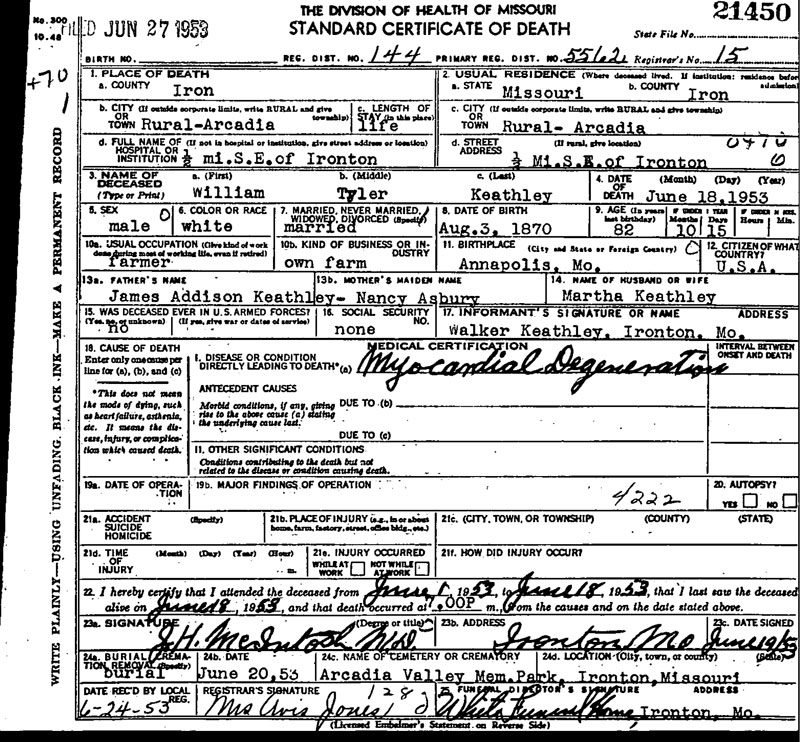 No. 300
10.48
FILED JUN 27 1953
THE DIVISION OF HEALTH OF MISSOURI
STANDARD CERTIFICATE OF DEATH
21450
State File No.
BIRTH NO.
REG. DIST. NO. 144
PRIMARY REG. DIST. NO. 5562
Registrar's No. 15
+70
1
WRITE PLAINLY—USING UNFADING BLACK INK—MAKE A PERMANENT RECORD
1. PLACE OF DEATH
a. COUNTY Iron
2. USUAL RESIDENCE (Where deceased lived. If institution: residence before admission)
a. STATE Missouri b. COUNTY Iron
b. CITY (If outside corporate limits, write RURAL and give township)
OR TOWN Rural-Arcadia
c. LENGTH OF STAY (in this place) life
c. CITY (If outside corporate limits, write RURAL and give township)
OR TOWN Rural- Arcadia
d. FULL NAME OF (If not in hospital or institution, give street address or location)
HOSPITAL OR INSTITUTION ½ mi.S.E.of Ironton
d. STREET ADDRESS (If rural, give location)
½ Mi.S.E.of Ironton
0470
0
3. NAME OF DECEASED (Type or Print)
a. (First) William b. (Middle) Tyler c. (Last) Keathley
4. DATE OF DEATH (Month) (Day) (Year) June 18,1953
5. SEX male 0
6. COLOR OR RACE white
7. MARRIED, NEVER MARRIED, WIDOWED, DIVORCED (Specify) married 1
8. DATE OF BIRTH Aug.3, 1870
9. AGE (In years last birthday) 82 IF UNDER 1 YEAR Months 10 Days 15 IF UNDER 24 HRS. Hours Min.
10a. USUAL OCCUPATION (Give kind of work done during most of working life, even if retired) farmer
10b. KIND OF BUSINESS OR INDUSTRY own farm
11. BIRTHPLACE (City and State or Foreign Country) Annapolis, Mo.
12. CITIZEN OF WHAT COUNTRY? U.S.A.
13a. FATHER'S NAME James Addison Keathley-
13b. MOTHER'S MAIDEN NAME Nancy Asbury
14. NAME OF HUSBAND OR WIFE Martha Keathley
15. WAS DECEASED EVER IN U.S. ARMED FORCES? (Yes, no, or unknown) (If yes, give war or dates of service) no
16. SOCIAL SECURITY NO. none
17. INFORMANT'S SIGNATURE OR NAME ADDRESS
Walker Keathley, Ironton, Mo.
18. CAUSE OF DEATH
Enter only one cause per line for (a), (b), and (c)
*This does not mean the mode of dying, such as heart failure, asthenia, etc. It means the disease, injury, or complication which caused death.
MEDICAL CERTIFICATION
INTERVAL BETWEEN ONSET AND DEATH
I. DISEASE OR CONDITION DIRECTLY LEADING TO DEATH*(a) Myocardial Degeneration
ANTECEDENT CAUSES
Morbid conditions, if any, giving rise to the above cause (a) stating the underlying cause last.
DUE TO (b)
DUE TO (c)
11. OTHER SIGNIFICANT CONDITIONS
Conditions contributing to the death but not related to the disease or condition causing death.
19a. DATE OF OPERATION
19b. MAJOR FINDINGS OF OPERATION
4222
20. AUTOPSY?
YES NO
21a. ACCIDENT SUICIDE HOMICIDE (Specify)
21b. PLACE OF INJURY (e.g., in or about home, farm, factory, street, office bldg., etc.)
21c. (CITY, TOWN, OR TOWNSHIP) (COUNTY) (STATE)
21d. TIME OF INJURY (Month) (Day) (Year) (Hour) m.
21e. INJURY OCCURRED WHILE AT WORK NOT WHILE AT WORK
21f. HOW DID INJURY OCCUR?
22. I hereby certify that I attended the deceased from June 1, 1953, to June 18, 1953, that I last saw the deceased
alive on June 18, 1953, and that death occurred at .00P m., from the causes and on the date stated above.
23a. SIGNATURE (Degree or title) J.H. McIntosh M.D.
23b. ADDRESS Ironton Mo
23c. DATE SIGNED June 19/53
24a. BURIAL, CREMATION, REMOVAL (Specify) burial
24b. DATE June 20,53
24c. NAME OF CEMETERY OR CREMATORY Arcadia Valley Mem.Park,
24d. LOCATION (City, town, or county) (State) Ironton,Missouri
DATE REC'D BY LOCAL REG. 6-24-53
REGISTRAR'S SIGNATURE Mrs Avis Jones
128
25. FUNERAL DIRECTOR'S SIGNATURE ADDRESS
White Funeral Home, Ironton, Mo.
(Licensed Embalmer's Statement on Reverse Side)